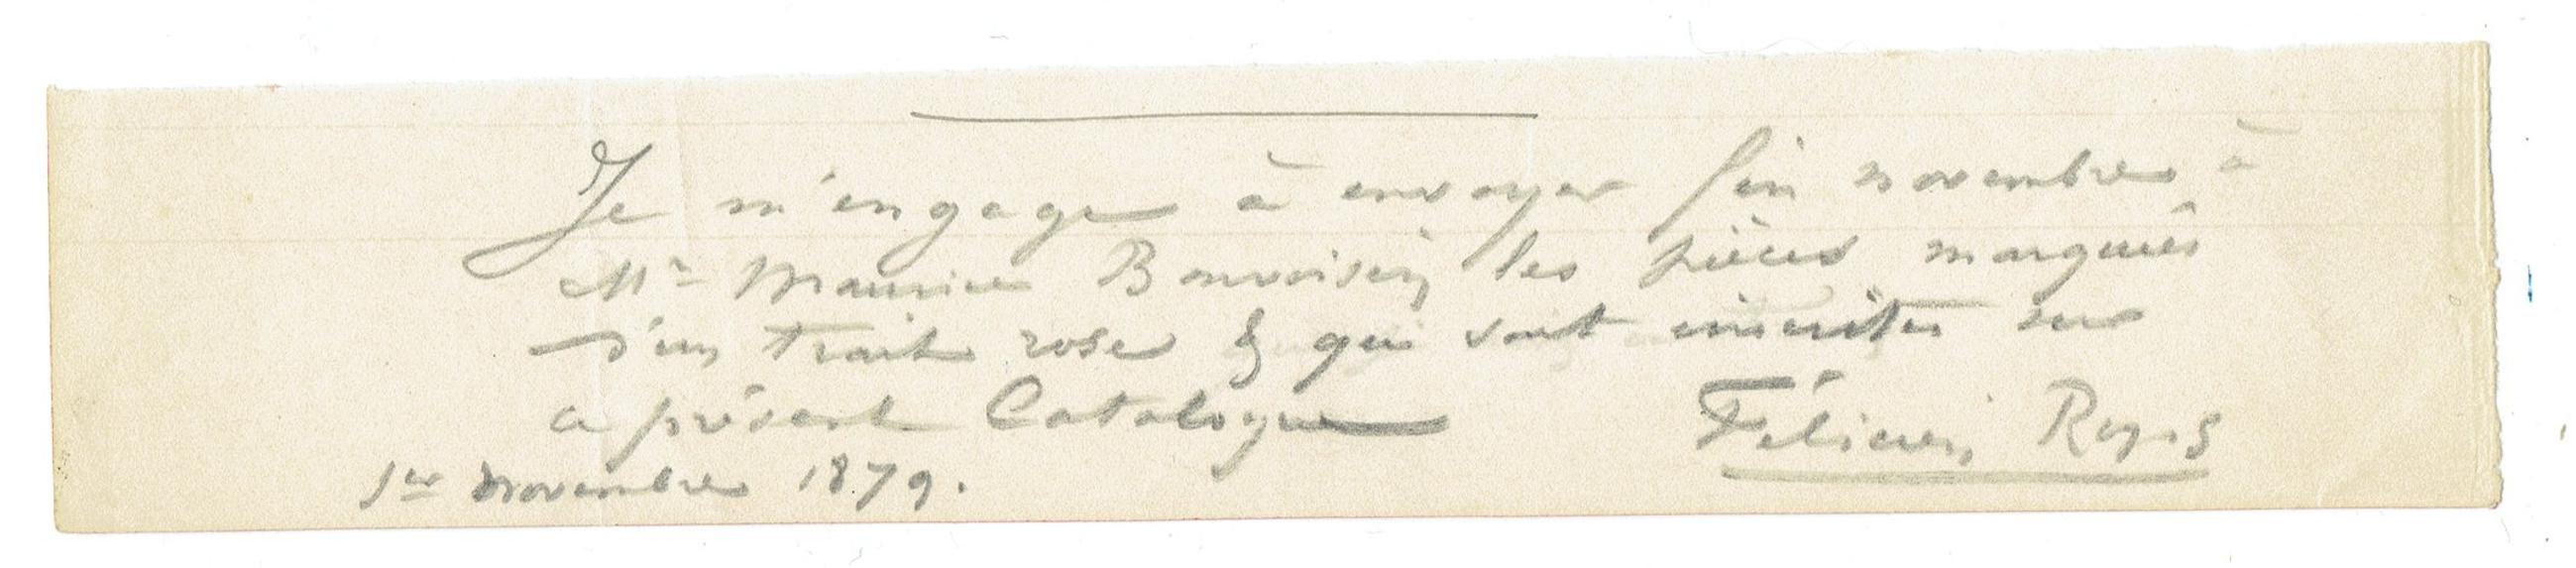 Je m'engage à envoyer fin novembre à
Mr Maurice Bonvoisin les pièces marquées
d'un trait rose & qui sont inscrites sur
ce présent Catalogue
Félicien Rops
1er Novembre 1879.